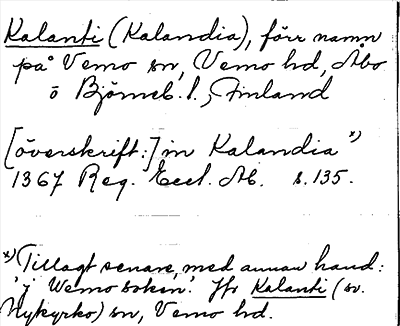 Kalanti (Kalandia), förr namn
på Vemo sn, Vemo hd, Åbo
o Björneb. l., Finland
[överskrift:] in Kalandia x)
1367 Reg. Eccl. Ab. s. 135.
x) Tillagt senare, med annan hand:
'j Wemo soken'. Jfr Kalanti (sv.
Nykyrko) sn, Vemo hd.